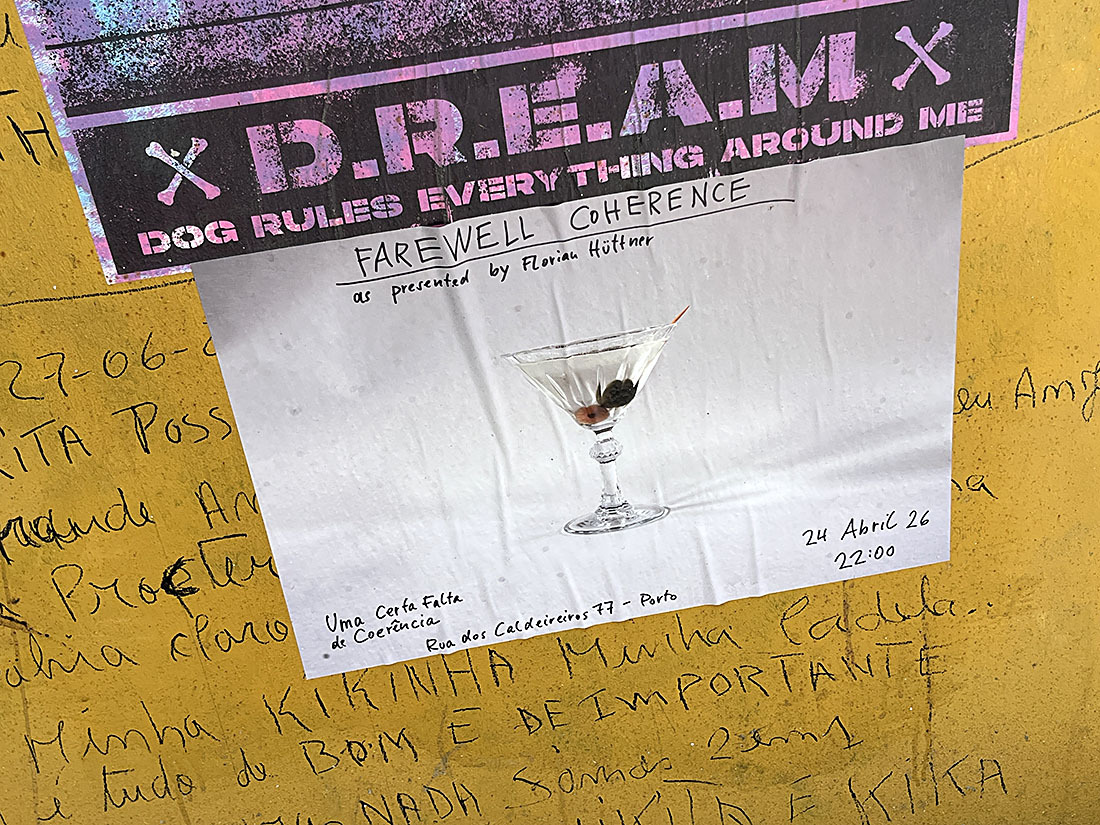 D.R.E.A.M
DOG RULES EVERYTHING AROUND ME
FAREWELL COHERENCE
as presented by Florian Hüttner
24 Abril 26
22:00
Uma Certa Falta
de Coerência
Rua dos Caldeireiros 77 - Porto
27-06-
Poss
eu
claro
Minha KIKINHA Minha Cadela..
é tudo de BOM E DE IMPORTANTE
NADA Somos 2 em 1
E KIKA